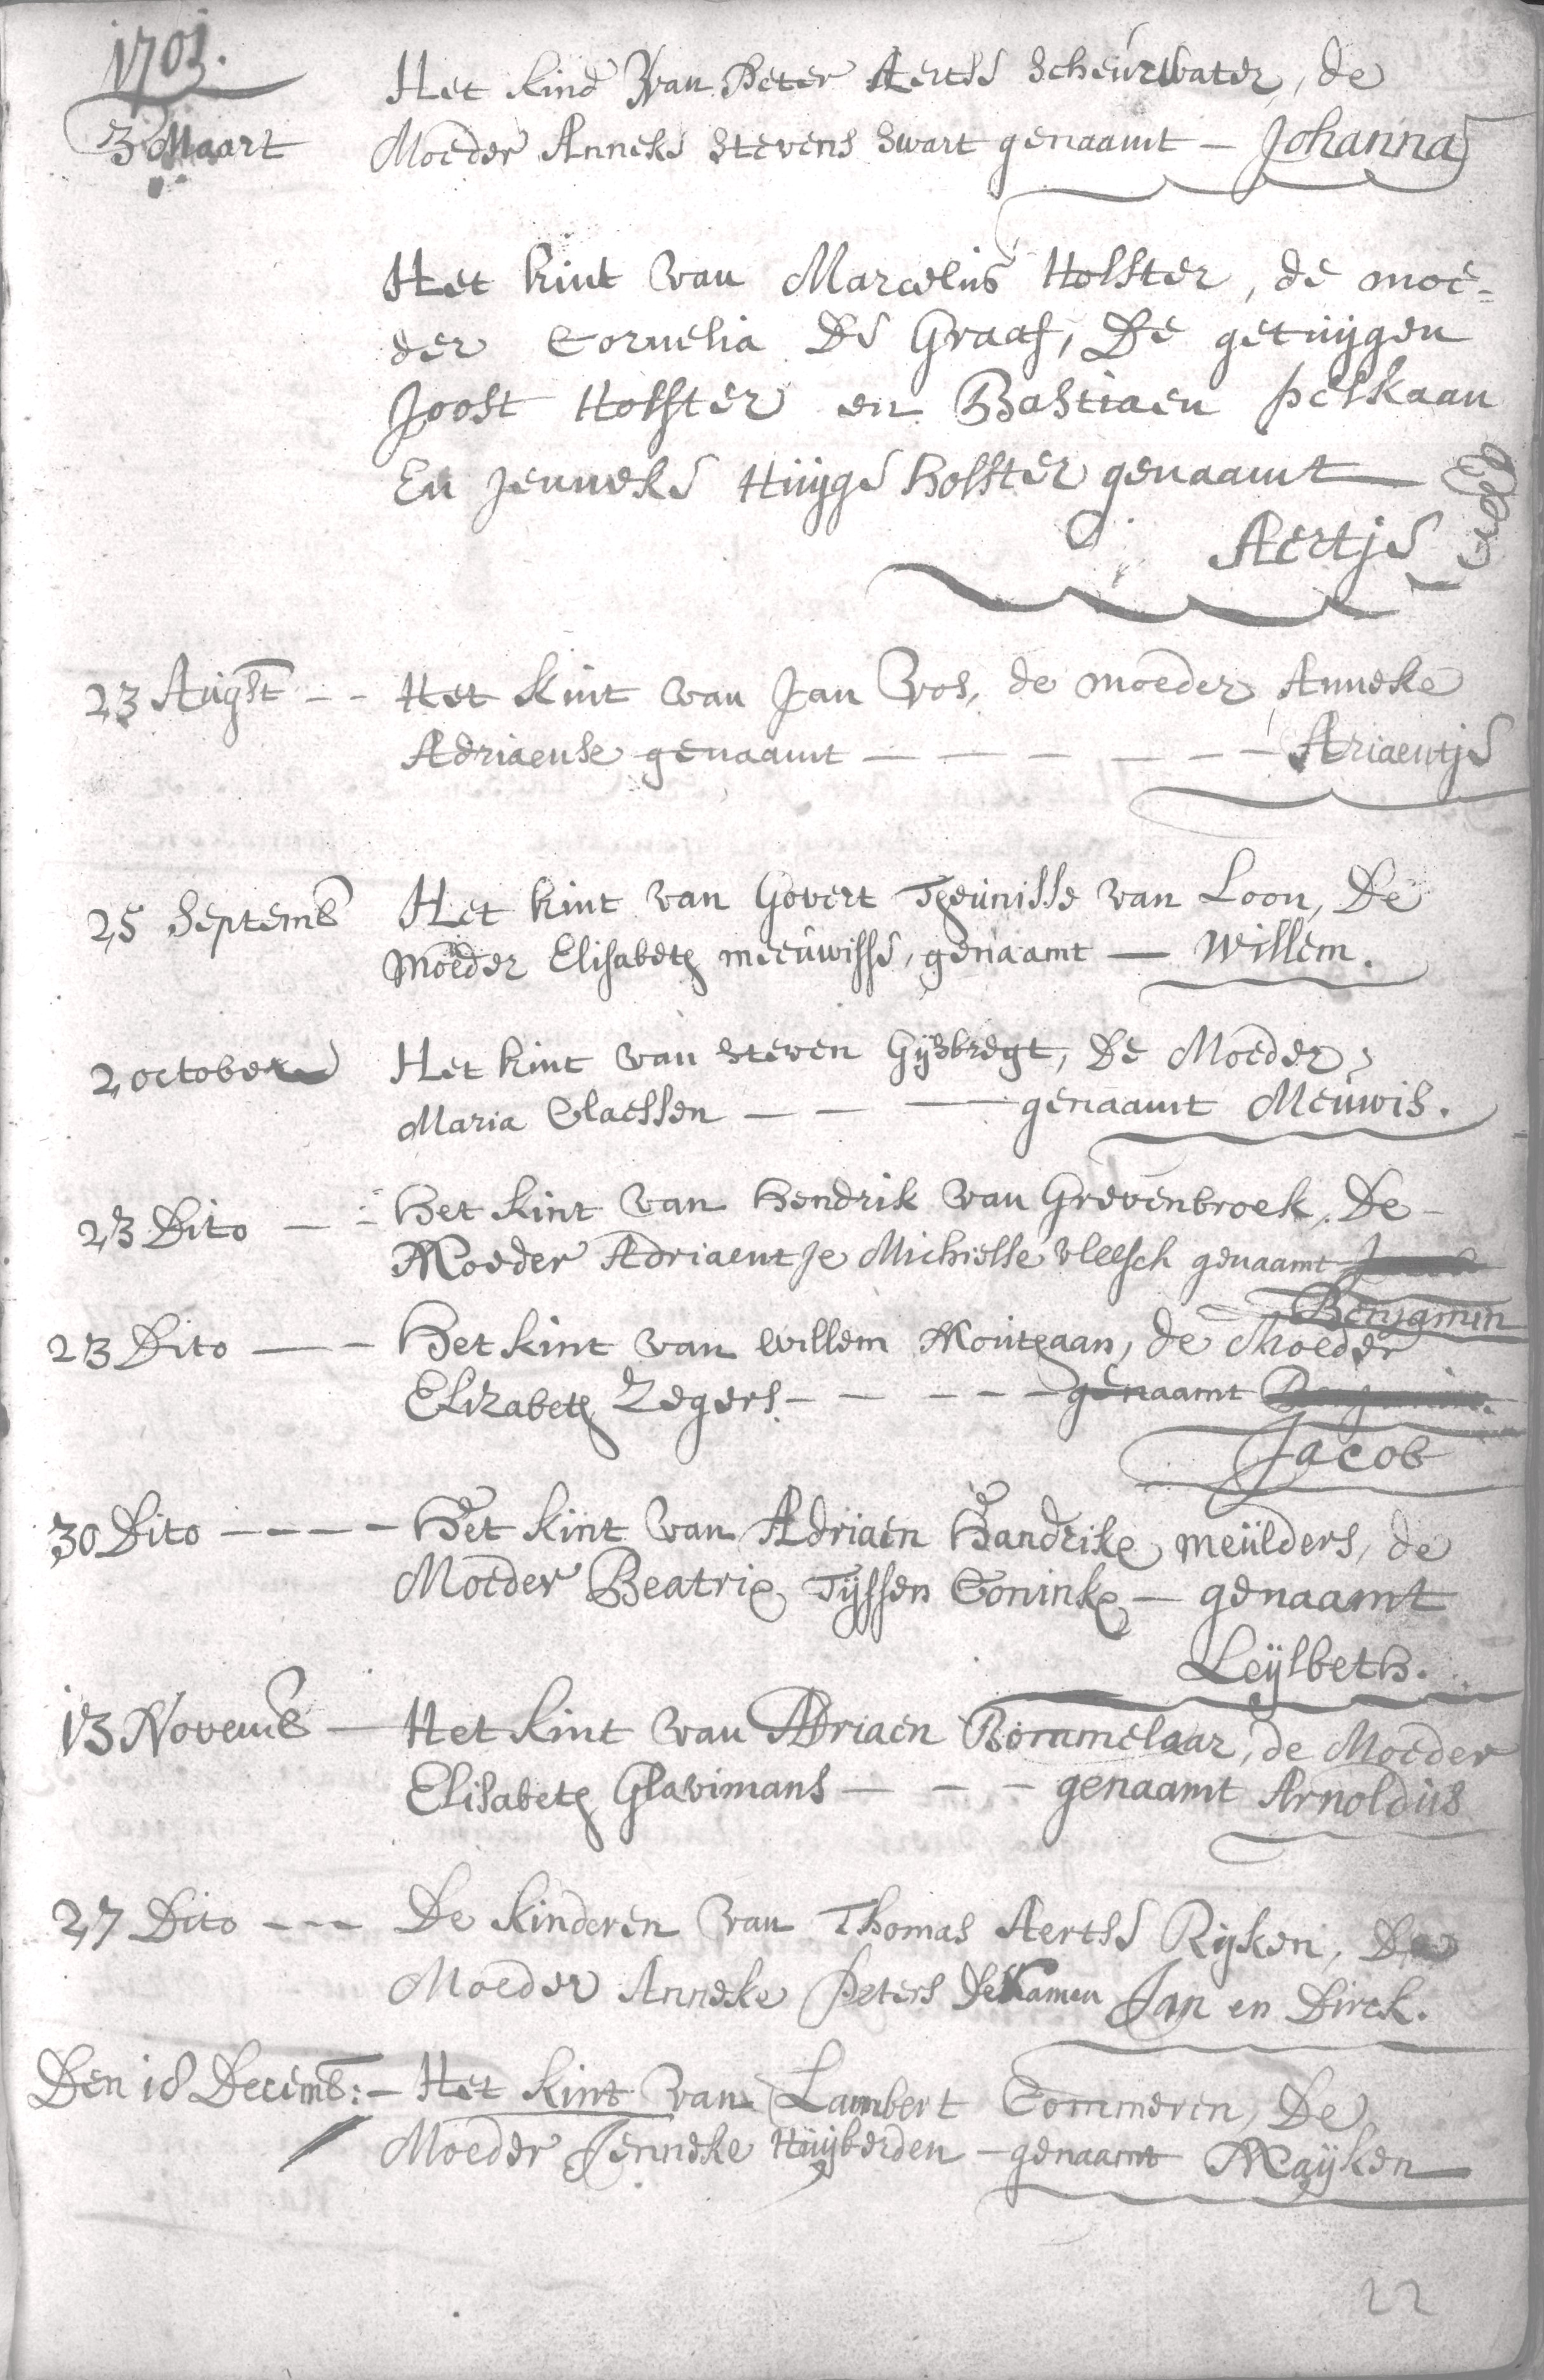 1701.
3 Maart
Het kind Van Peter Aertse Scheurwater, de
Moeder Anneke Stevens Swart genaamt — Johanna
Het kint van Marcelus Holster, de moe=
der Cornelia De Graaf, De getuijgen
Joost Holster en Bastiaen pelkaan
En Jenneke Huijge holster genaamt —
Aertje
23 Augst — - Het kint van Jan Vos, de moeder Anneke
Adriaense genaamt — — — — — Ariaentje
25 Septemb Het kint van Govert Theunisse van Loon, De
moeder Elisabeth meeuwisse, genaamt — Willem.
2 october Het kint van Steven Gijsbregt, De Moeder
Maria Claessen — — — genaamt Meuwis.
23 Dito — - Het kint van Hendrik van Grevenbroek, De -
Moeder Adriaentje Michielse vleesch genaamt
Benjamin
23 Dito — - Het kint van Willem Mouthaan, de Moeder
Elizabeth Zegers — — — — genaamt
Jacob
30 Dito — — — — Het kint van Adriaen Handrike meulders, de
Moeder Beatrix Tijssen Coninkx — genaamt
Leijsbeth.
13 Novemb — Het kint van Adriaen Bommelaar, de Moeder
Elisabeth Glavimans — — — genaamt Arnoldus
27 Dito — — — De kinderen van Thomas Aertse Rijken, De
Moeder Anneke Peters De Namen Jan en Dirck.
Den 18 Decemb: — Het kint van Lambert Commeren, De
Moeder Jenneke Huijberden — genaamt Maijken
22